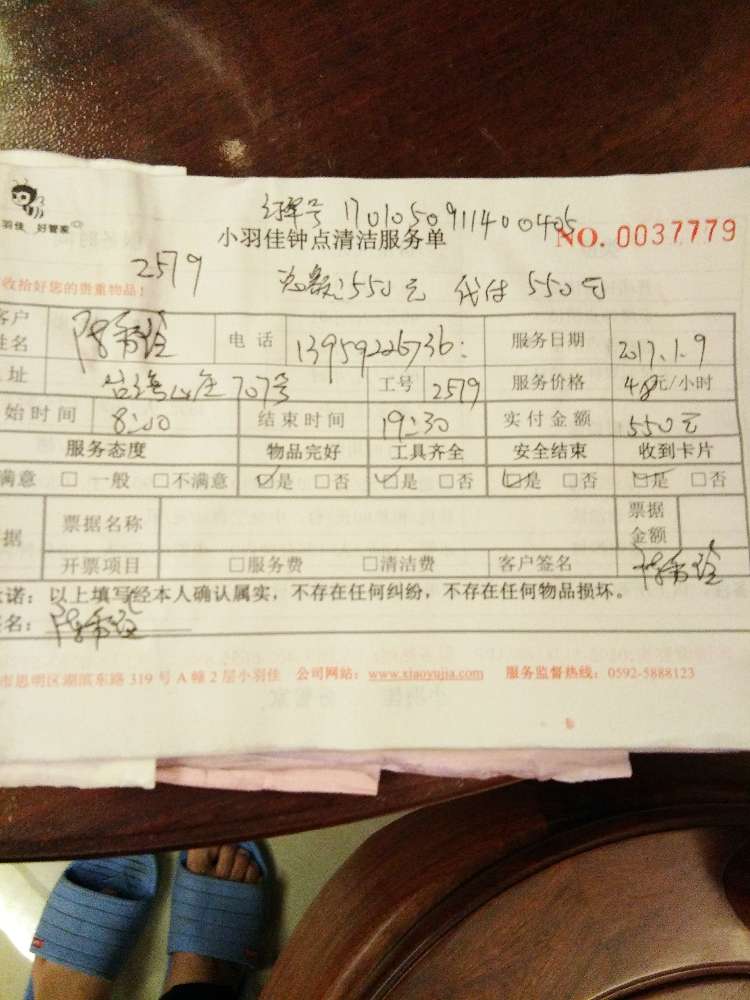 订单号 170105091140 00405
羽佳 好管家
小羽佳钟点清洁服务单 NO. 0037779
2579
收拾好您的贵重物品！
总额:550元 代付 550元
客户姓名 电话 13959226736 服务日期 2017.1.9
址 山庄707号 工号 2579 服务价格 48元/小时
始时间 8:00 结束时间 19:30 实付金额 550元
服务态度 物品完好 工具齐全 安全结束 收到卡片
满意 □ 一般 □不满意 ☑是 □否 ☑是 □否 ☑是 □否 ☑是 □否
据 票据名称 票据金额
开票项目 □服务费 □清洁费 客户签名
诺：以上填写经本人确认属实，不存在任何纠纷，不存在任何物品损坏。
名：
市思明区湖滨东路 319 号 A 幢 2 层小羽佳 公司网站：www.xiaoyujia.com 服务监督热线：0592-5888123